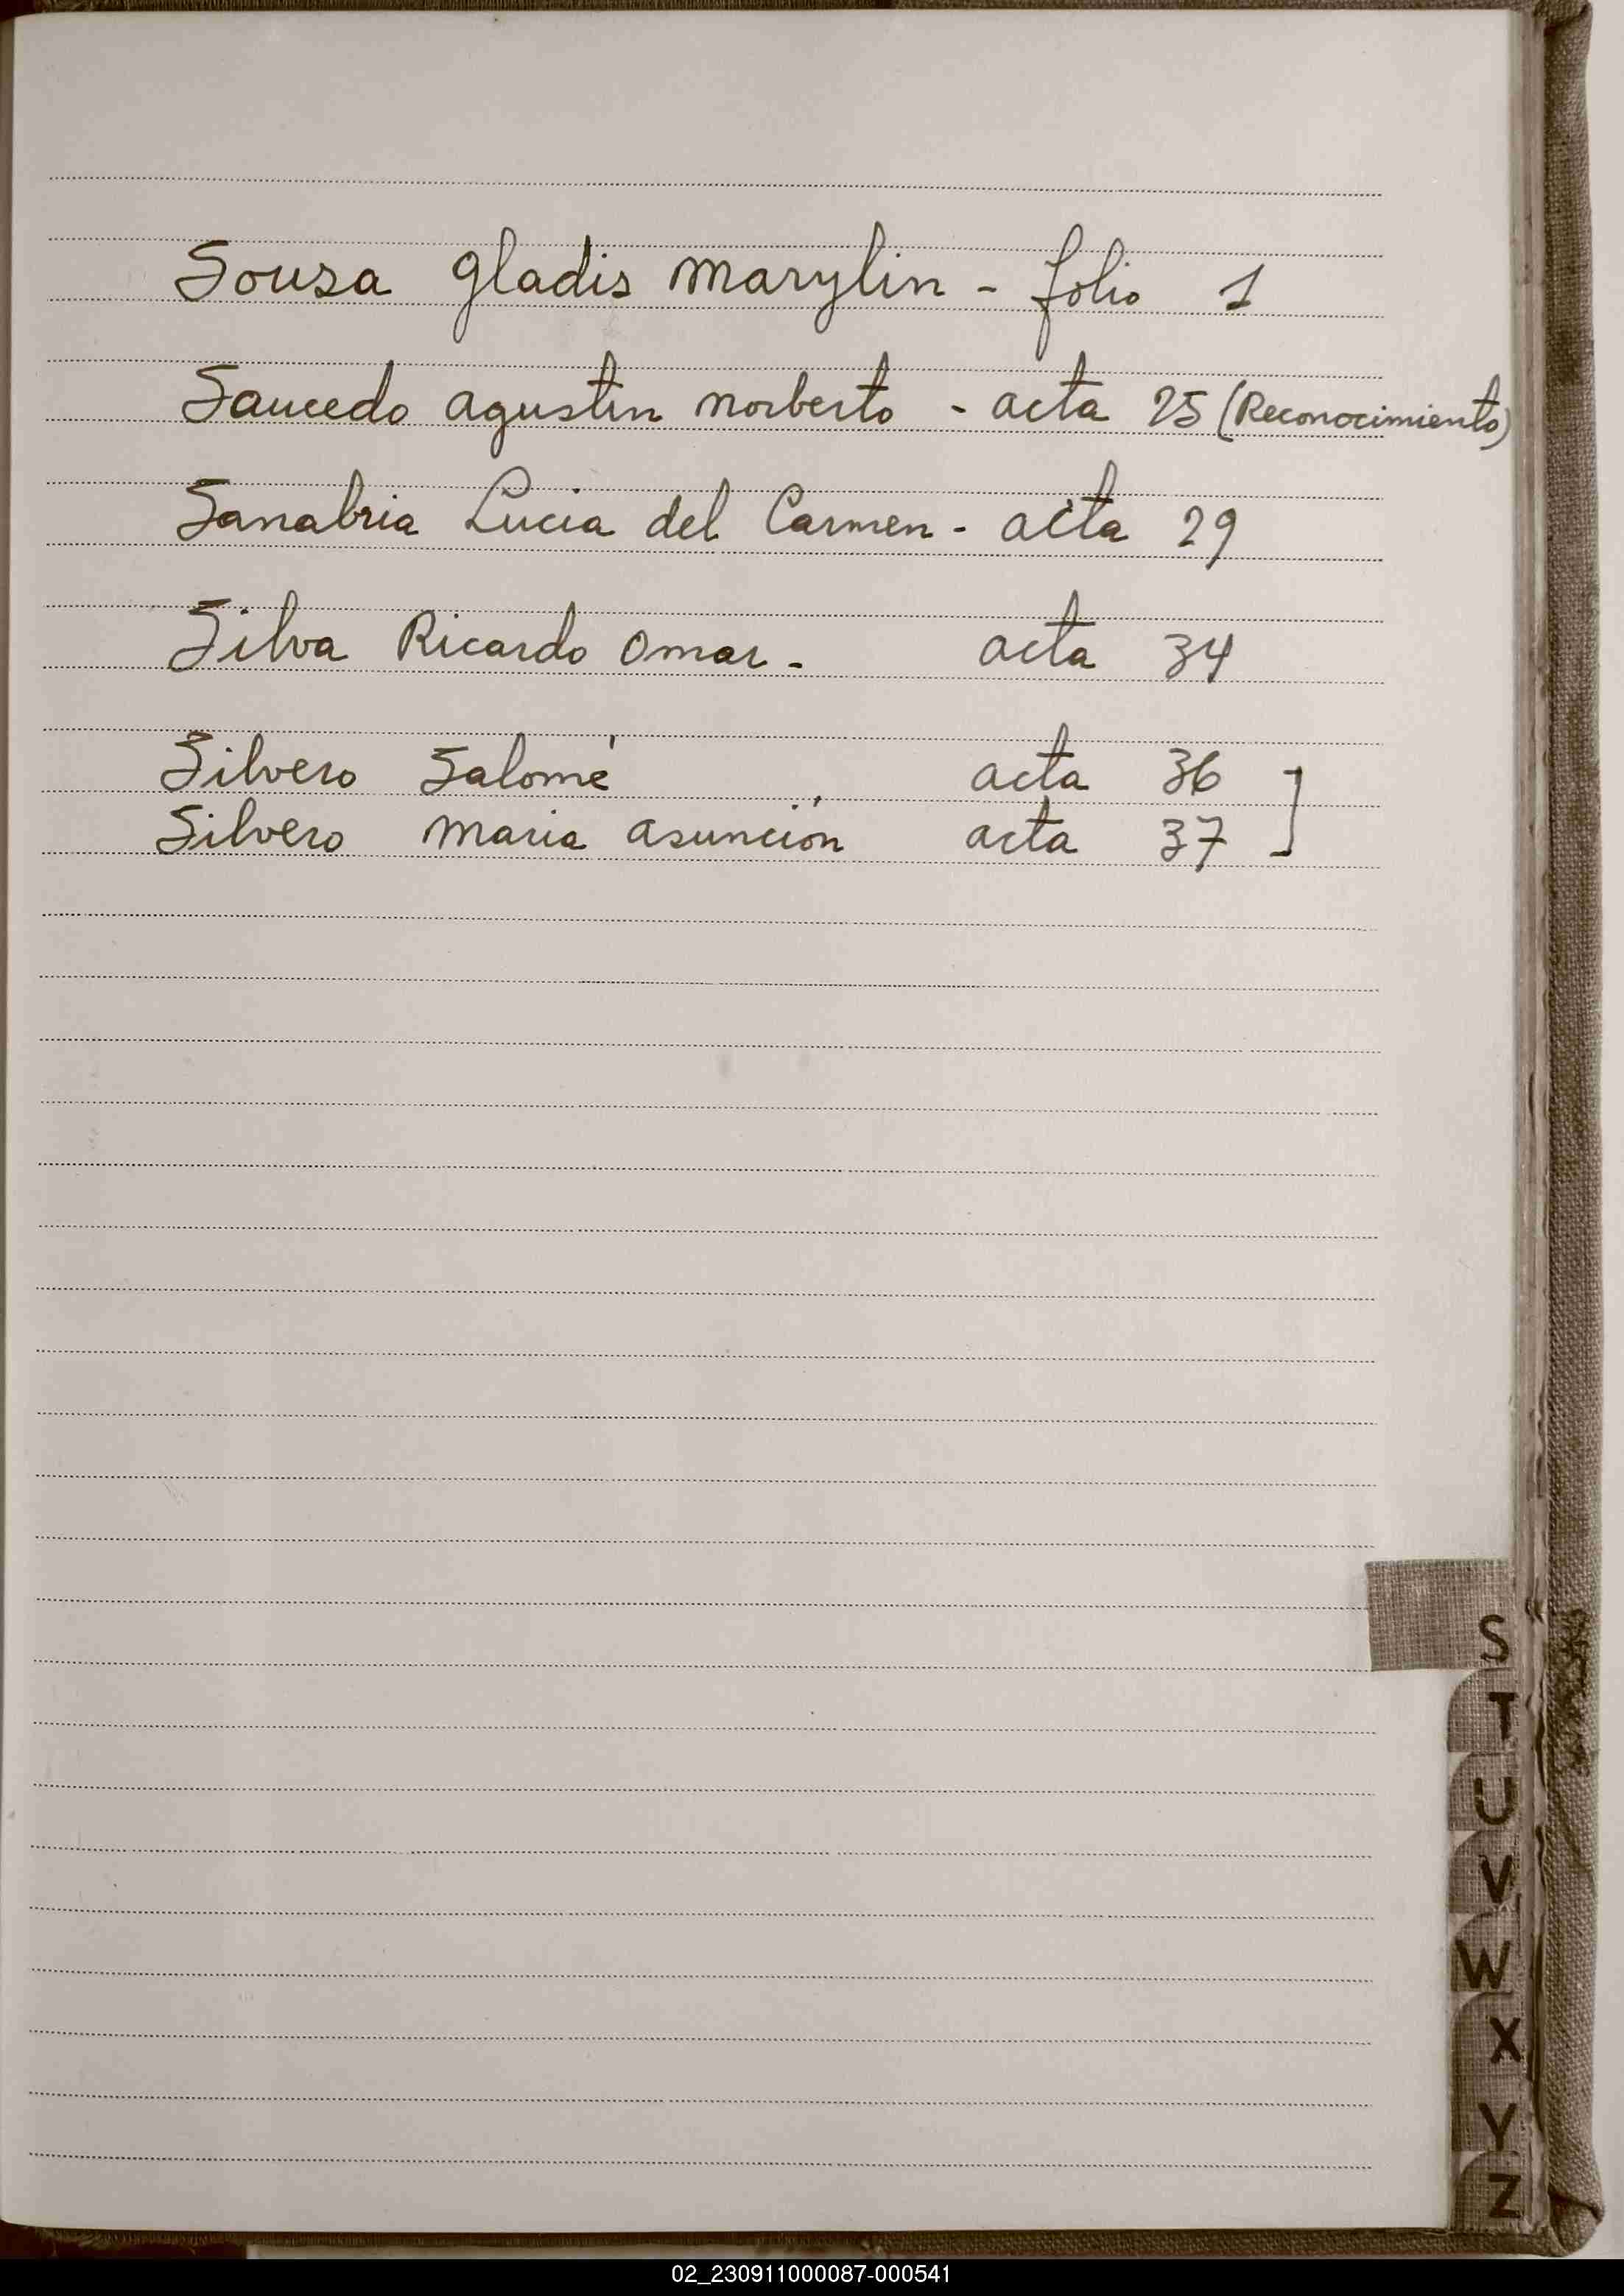 Sousa Gladis Marylin - folio 1
Saucedo Agustin Norberto - acta 25 (Reconocimiento)
Sanabria Lucia del Carmen - acta 29
Silva Ricardo Omar - acta 34
Silvero Salomé acta 36 ]
Silvero Maria Asunción acta 37
S
T
U
V
W
X
Y
Z
02_230911000087-000541